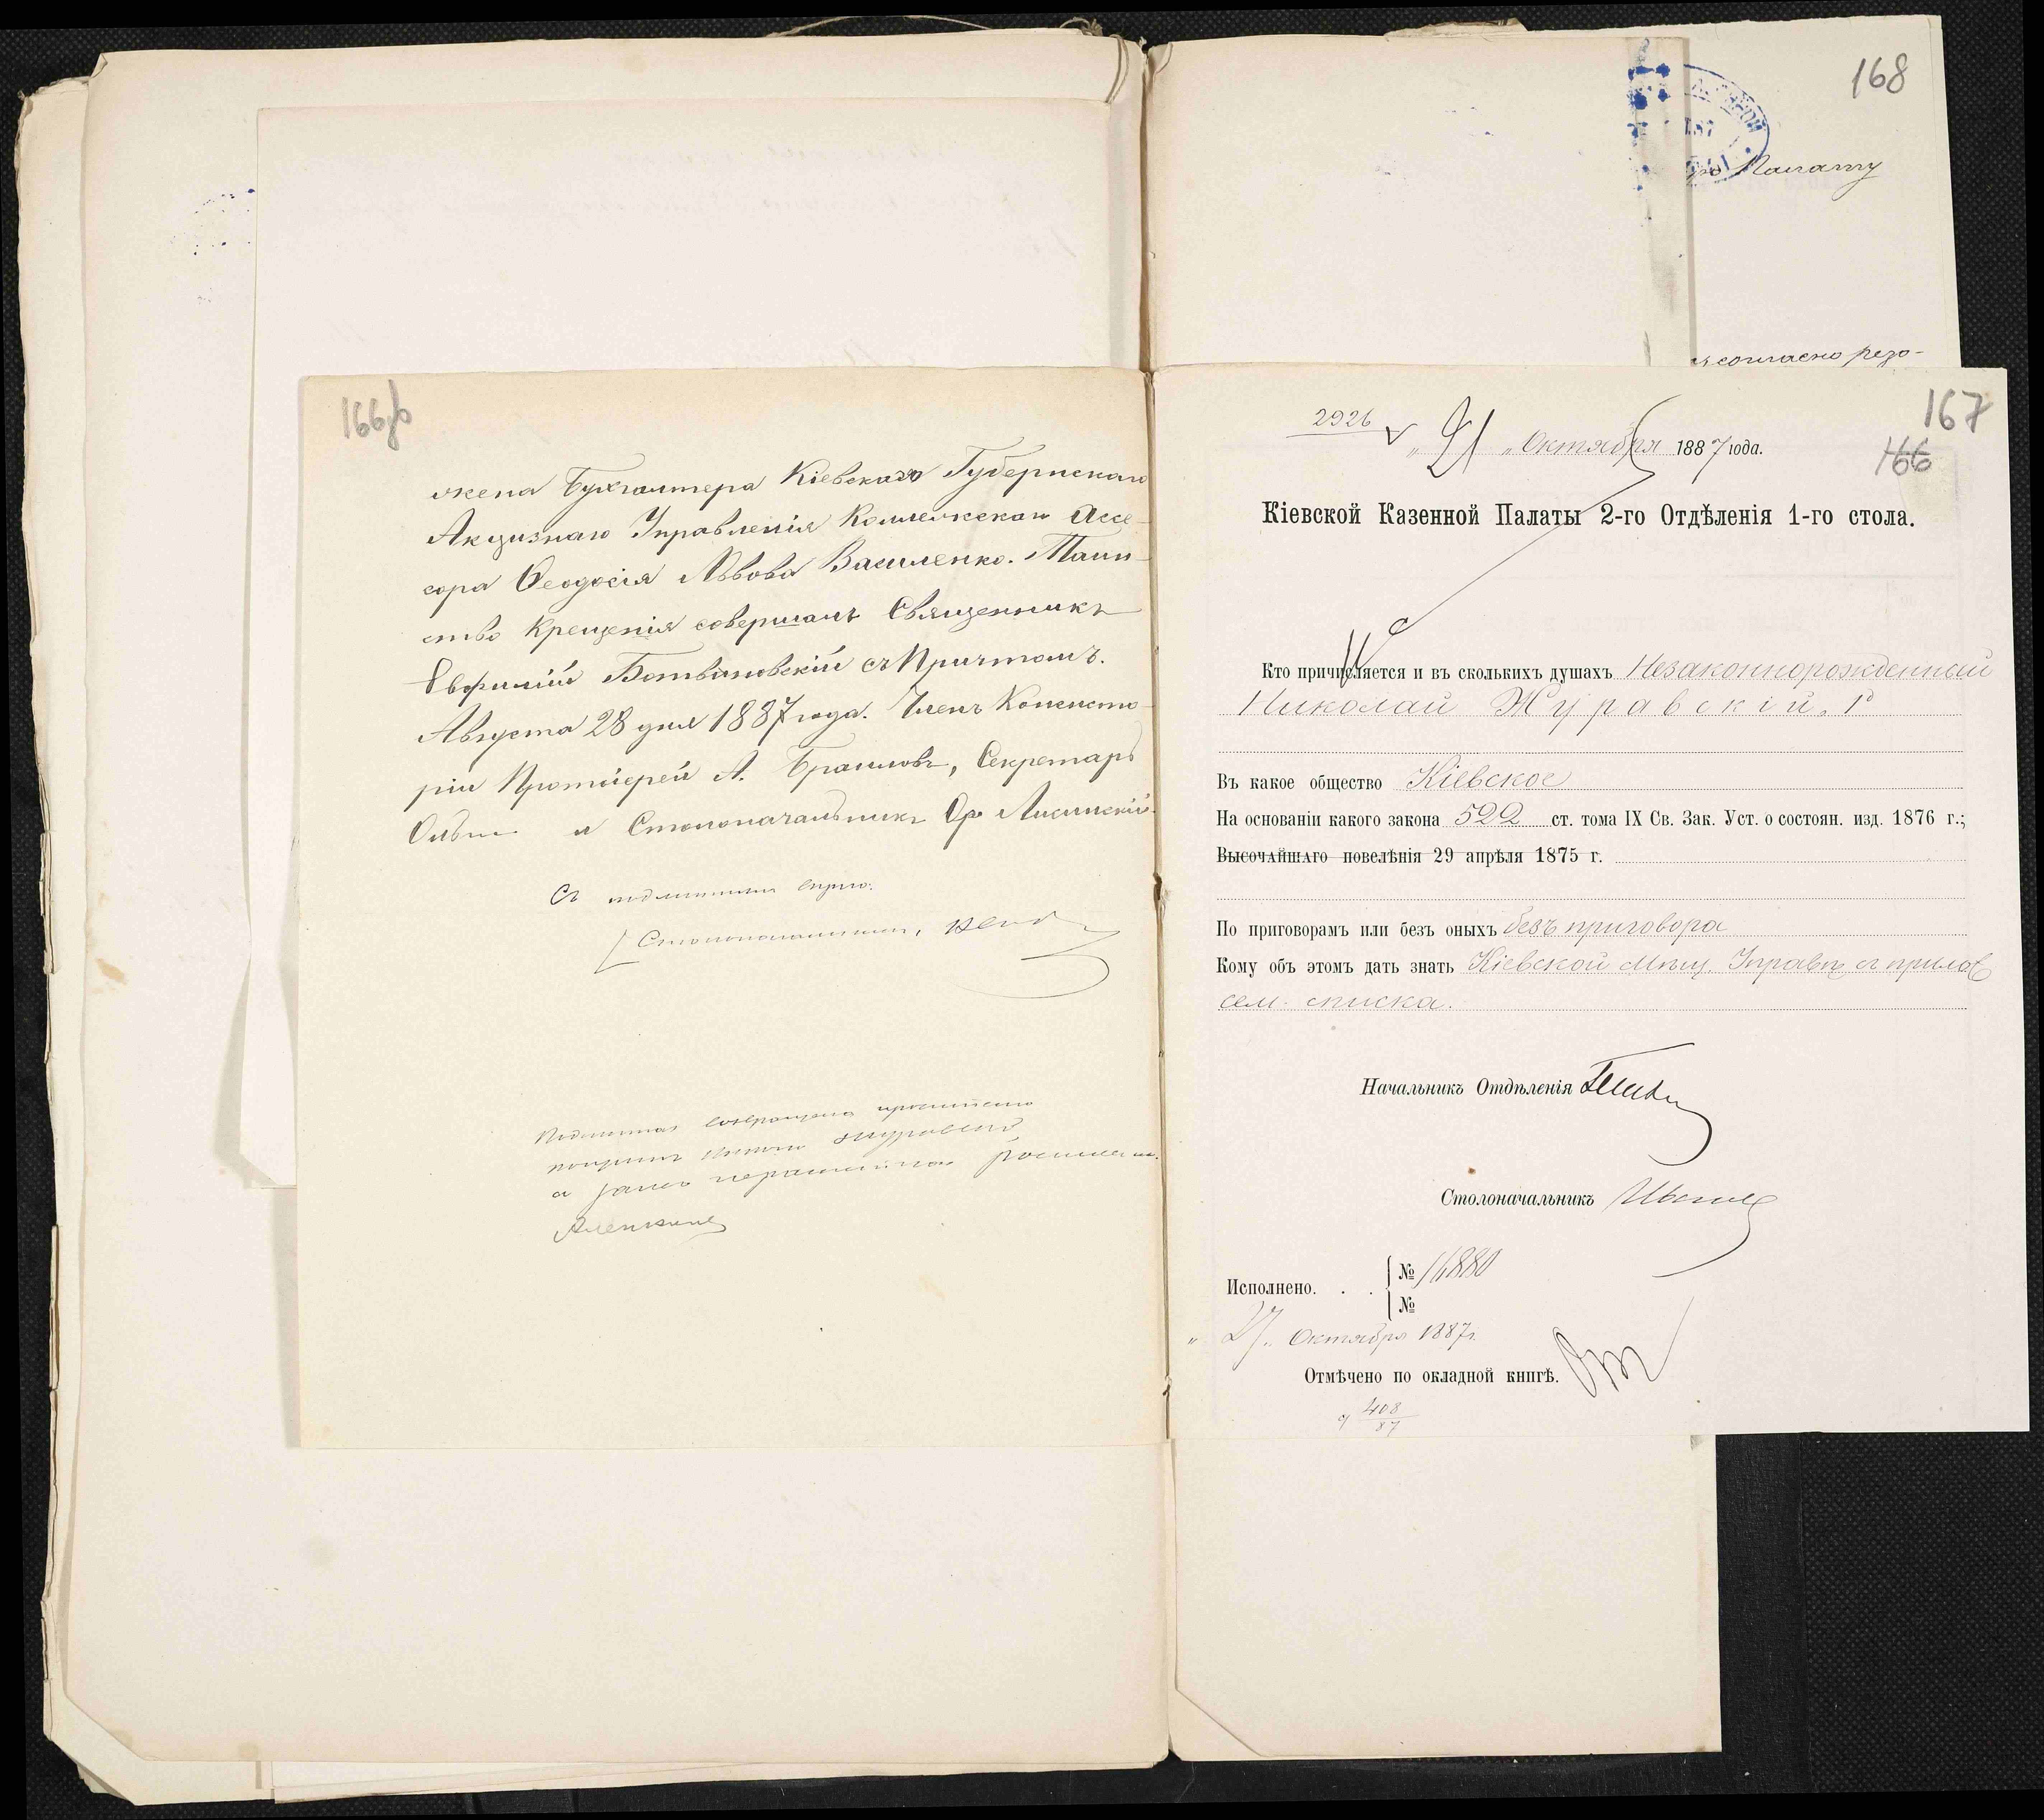 166об
жена Бухгалтера Кіевскаго Губернскаго
Акцизнаго Управленія Коллежскаго Ассе-
сора Ѳеодосія Львова Василенко. Таин-
ство Крещенія совершалъ Священникъ
Евфимій Ботвиновскій съ Причтомъ.
Августа 28 дня 1887 года. Членъ Консисто-
ріи Протоіерей А. Браиловъ, Секретарь
и Столоначальникъ Ор. Лисинскій.
Съ подлиннымъ вѣрно:
Столоначальникъ,
Подлинная возвращена
росписался.
168
Палату
согласно резо-
167
166
2926
„21„ Октября 1887 года.
Кіевской Казенной Палаты 2-го Отдѣленія 1-го стола.
Кто причисляется и въ сколькихъ душахъ Незаконнорожденный
Николай Журавскій.
Въ какое общество Кіевское
На основаніи какого закона 592 ст. тома IX Св. Зак. Уст. о состоян. изд. 1876 г.;
Высочайшаго повелѣнія 29 апрѣля 1875 г.
По приговорамъ или безъ оныхъ безъ приговора
Кому объ этомъ дать знать Кіевской Мѣщ. Управѣ съ прилож
сем. списка.
Начальникъ Отдѣленія
Столоначальникъ
Исполнено. . . № 16880
№
„27„ Октября 1887г.
Отмѣчено по окладной книгѣ.
408
87